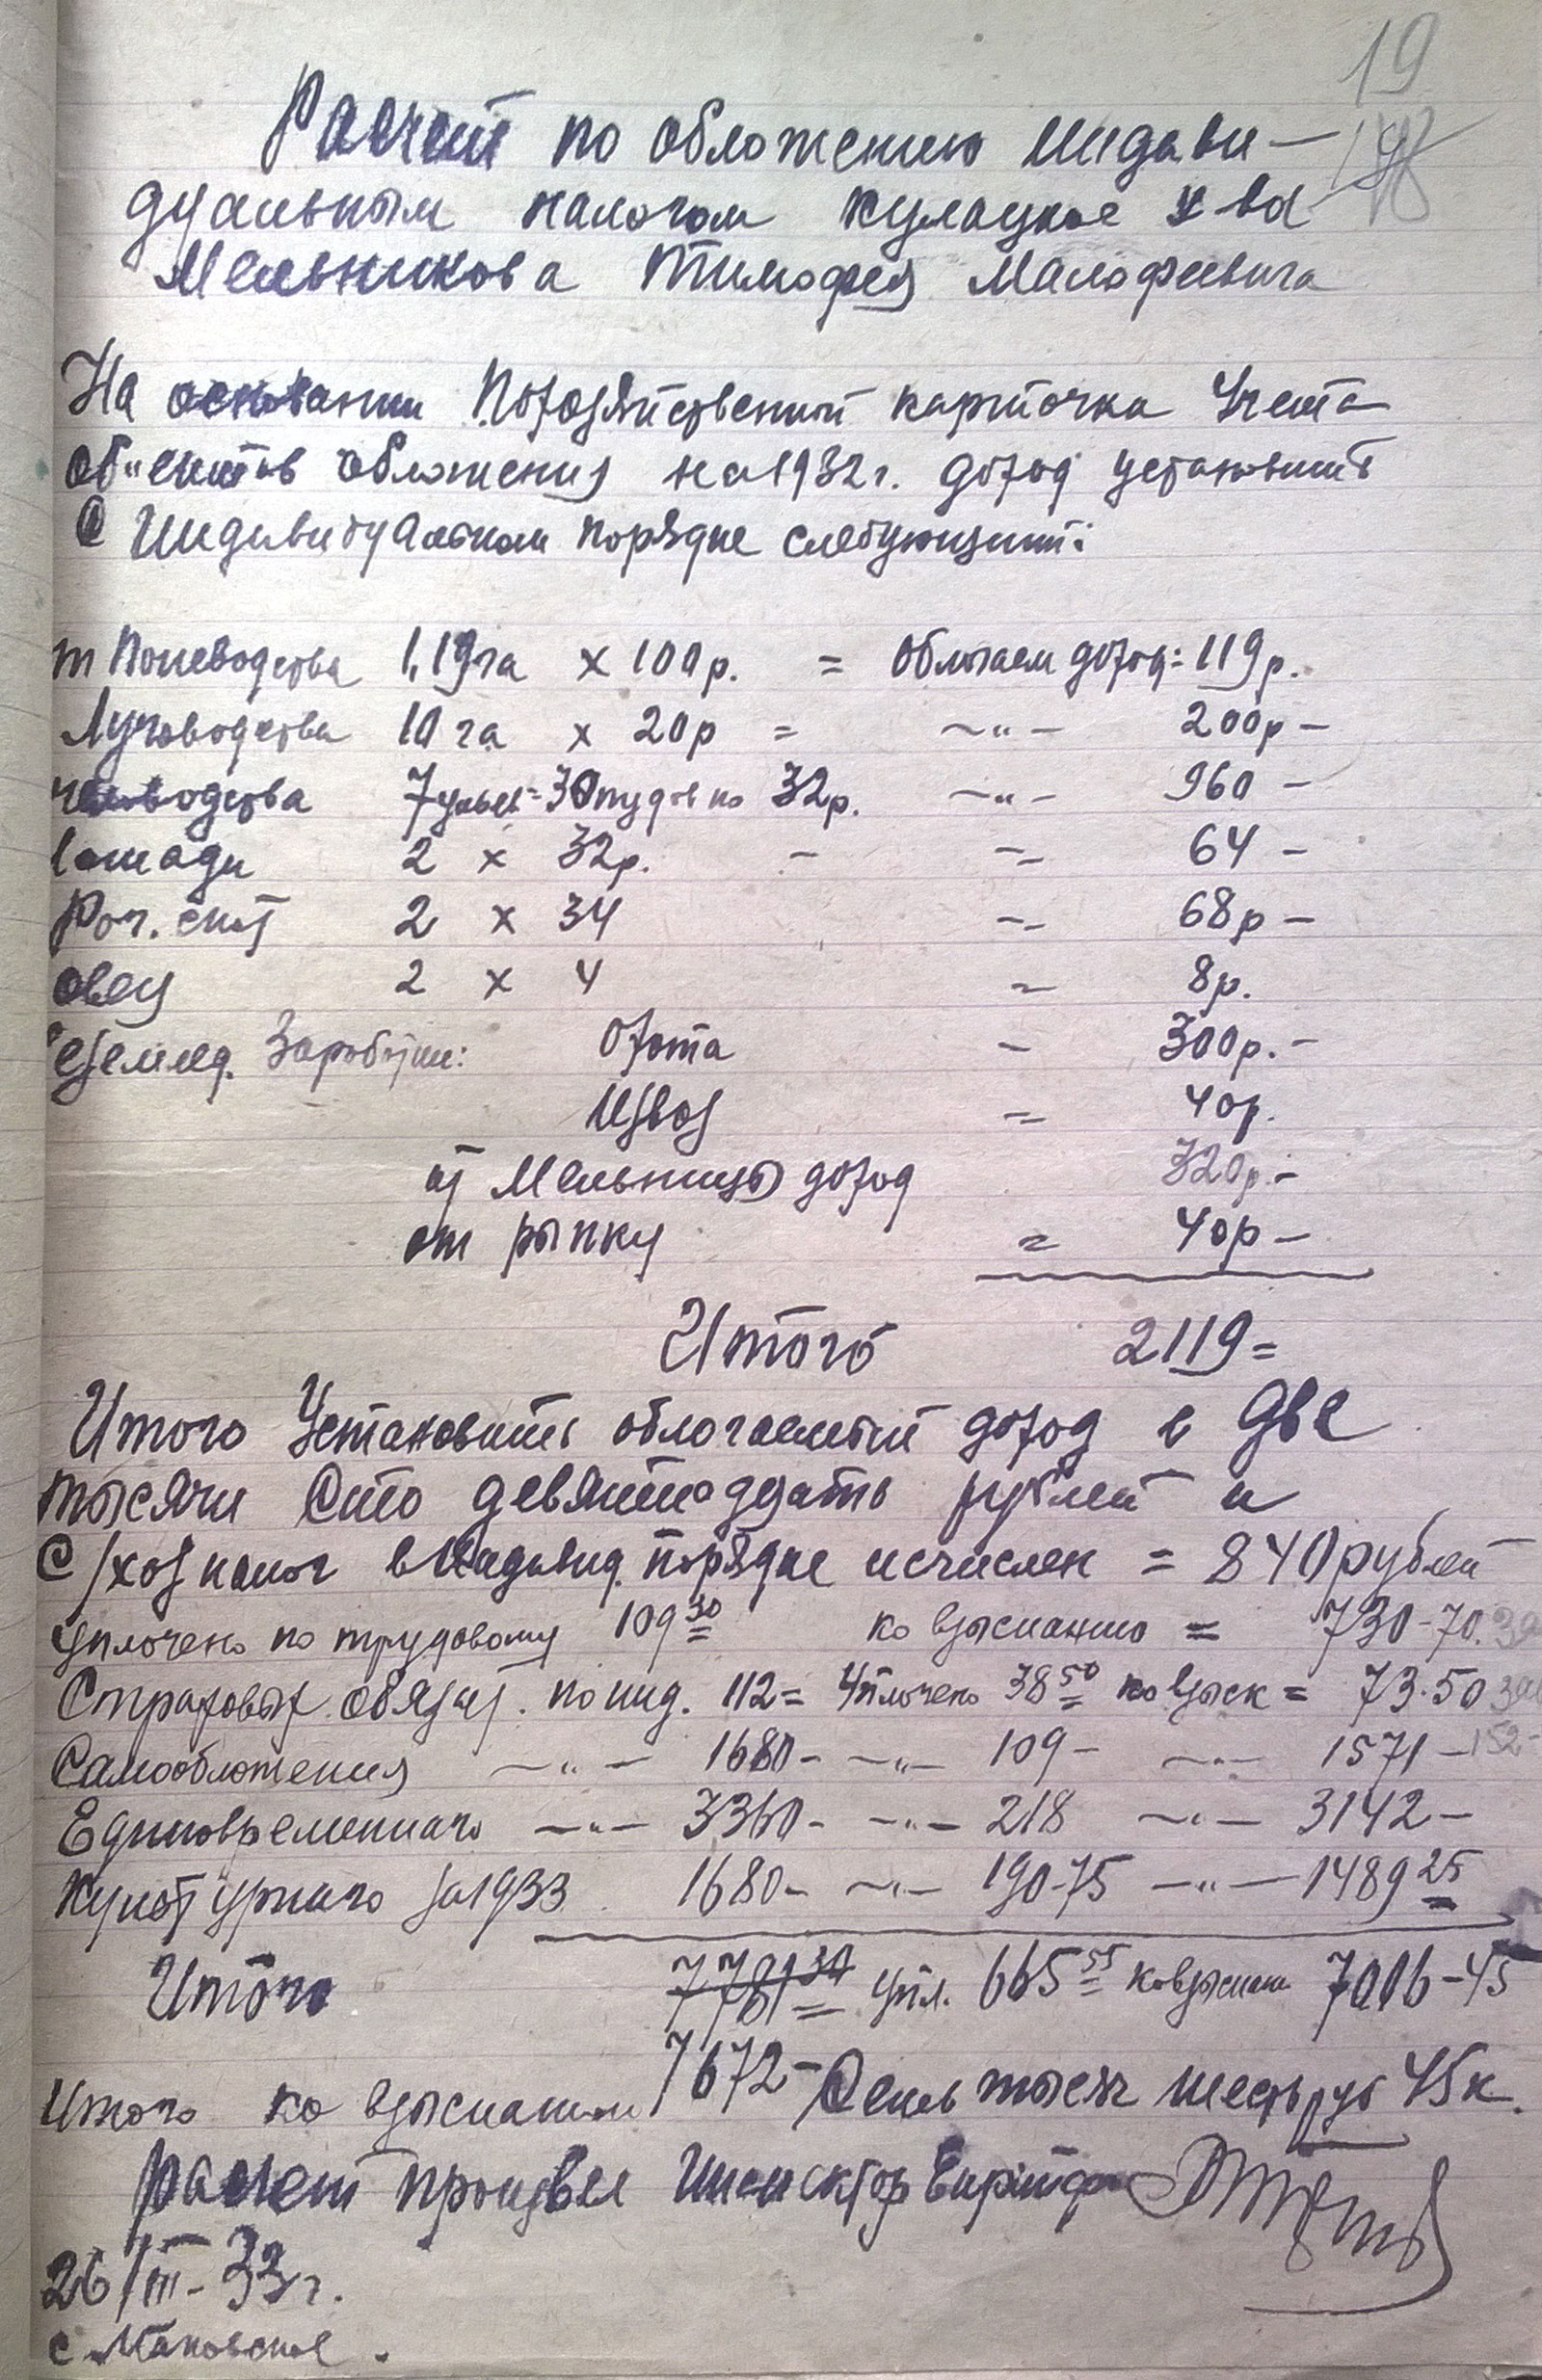 19
Расчет по обложению индиви-
дуальным налогом кулацкое х-во
Мельникова Тимофея Малофеевича
На основании Похозяйственной карточка Учета
об"ектов обложения на 1932 г. доход установить
в Индивидуальном порядке следующий:
т Полеводства 1,19 га х 100 р. = Облагаем доход = 119 р.
Луговодства 10 га х 20 р = -"- 200 р -
человодства 7 ульев = 30 пудов по 32 р. -"- 960 -
лошади 2 х 32 р. - -"- 64 -
Рог. скот 2 х 34 -"- 68 р -
овец 2 х 4 = 8 р.
Неземлед. Заработки: Охота - 300 р. -
Извоз = 40 р.
от Мельницы доход 320 р. -
от рынку = 40 р -
Итого 2119 =
Итого Установить облогаемый доход в Две
тысячи Сто девятнадцать рублей и
С/хоз налог в Индивид. порядке исчислен = 840 рублей
уплочено по трудовому 109 30 ко взысканию = 730-70
Страховых обязат. по инд. 112 = Уплочено 38 50 ко взыск = 73.50
Самообложения -"- 1680 - -"- 109 - -"- 1571 - 152-
Единовременного -"- 3360 - -"- 218 -"- 3142 -
Культурного за 1933 1680 - -"- 190-75 -"- 1489 25
Итого 7781 30 упл. 665 55 ко взыскан 7006-45
7672 -
Итого ко взысканию Семь тысяч шесть руб 45 к.
Расчет произвел Инспектор
26/III-33 г.
с Маковское.